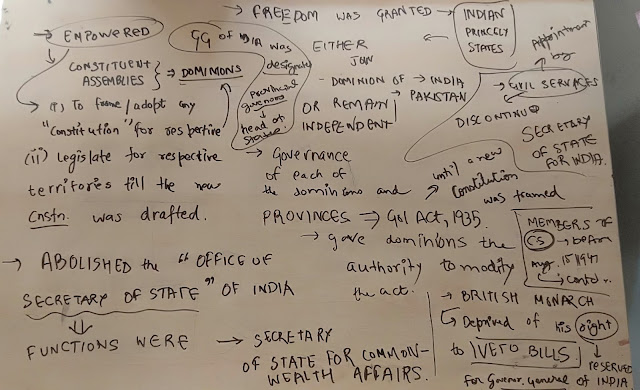 → EMPOWERED
CONSTITUENT
ASSEMBLIES } ⇒ DOMINIONS
(i) To frame/adopt any
"Constitution" for respective
(ii) Legislate for respective
territories till the new
Cnstn. was drafted.
→ ABOLISHED the "OFFICE OF
SECRETARY OF STATE" OF INDIA
⇓
FUNCTIONS WERE → SECRETARY
OF STATE FOR COMMON-
WEALTH AFFAIRS.
GG of INDIA was
designated
provincial
governors
↓
head of
states
→ FREEDOM WAS GRANTED → INDIAN
PRINCELY
STATES
EITHER
JOIN
- DOMINION OF → INDIA
→ PAKISTAN
OR REMAIN
INDEPENDENT
→ Governance
of each of
the dominions and
PROVINCES ⇒ GoI ACT, 1935.
until a new
Constitution
was framed
→ gave dominions the
authority to modify
the act.
Appointment
by
→ CIVIL SERVICES
DISCONTINUE
SECRETARY
OF STATE
FOR INDIA.
MEMBERS OF
CS → before
Aug. 15 1947
→ contd.
→ BRITISH MONARCH
↳ Deprived of his right
to VETO BILLS
↓
RESERVED
for Governor General of INDIA